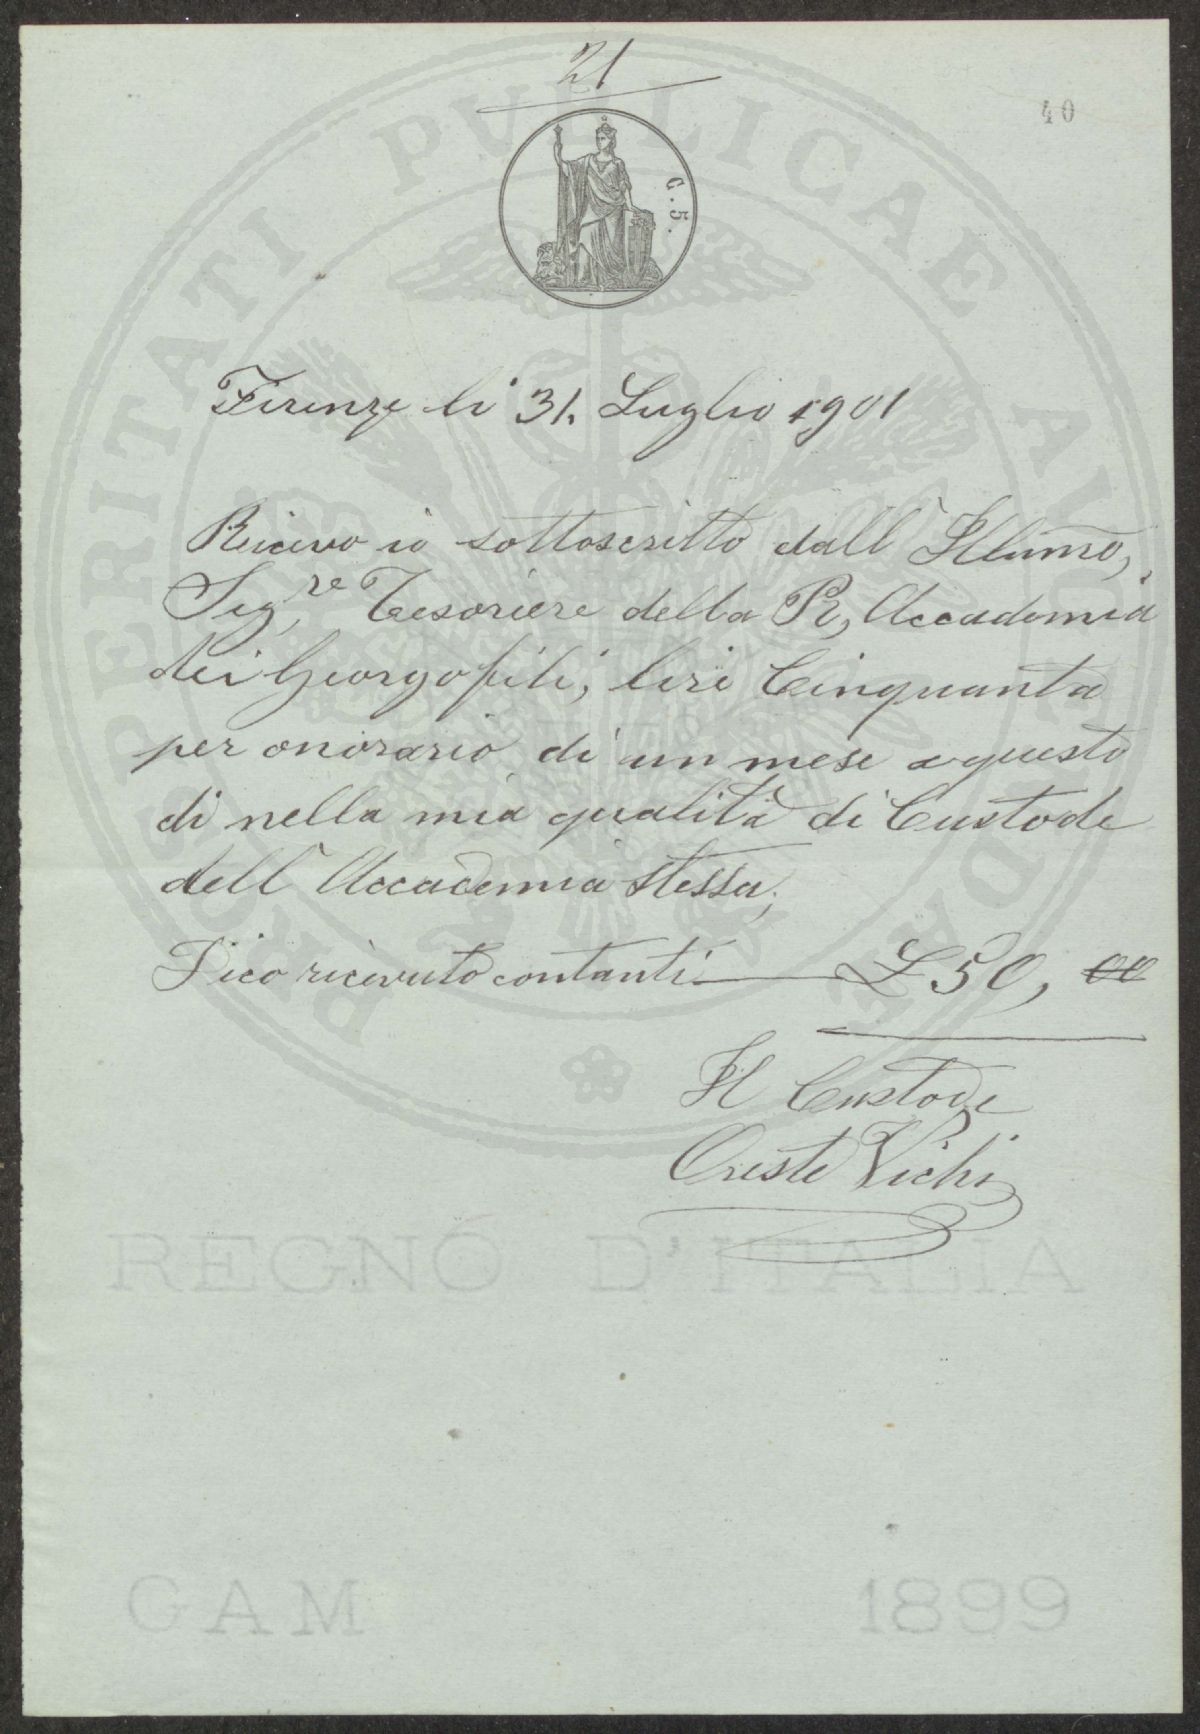 21
40
C. 5.
Firenze li 31. Luglio 1901
Ricievo io sottoscritto dall' Illumo,
Sig.re Tesoriere della R, Accademia
dei Georgofili, lire Cinquanta
per onorario di un mese a questo
dì nella mia qualità di Custode
dell' Accademia stessa,
Dico ricevuto contanti — £ 50, 00
Il Custode
Oreste Vichi
PROSPERITATI PUBLICAE AUGENDAE
REGNO D'ITALIA
GAM 1899